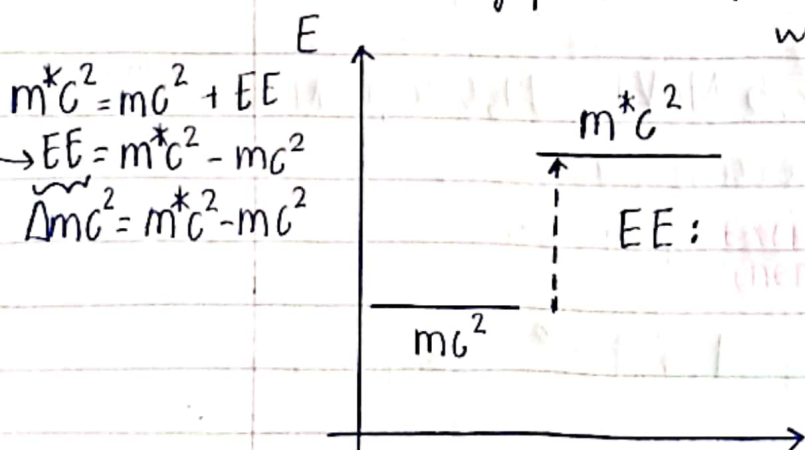 E
w
m*c² = mc² + EE
→ EE = m*c² - mc²
Δmc² = m*c² - mc²
m*c²
EE :
mc²